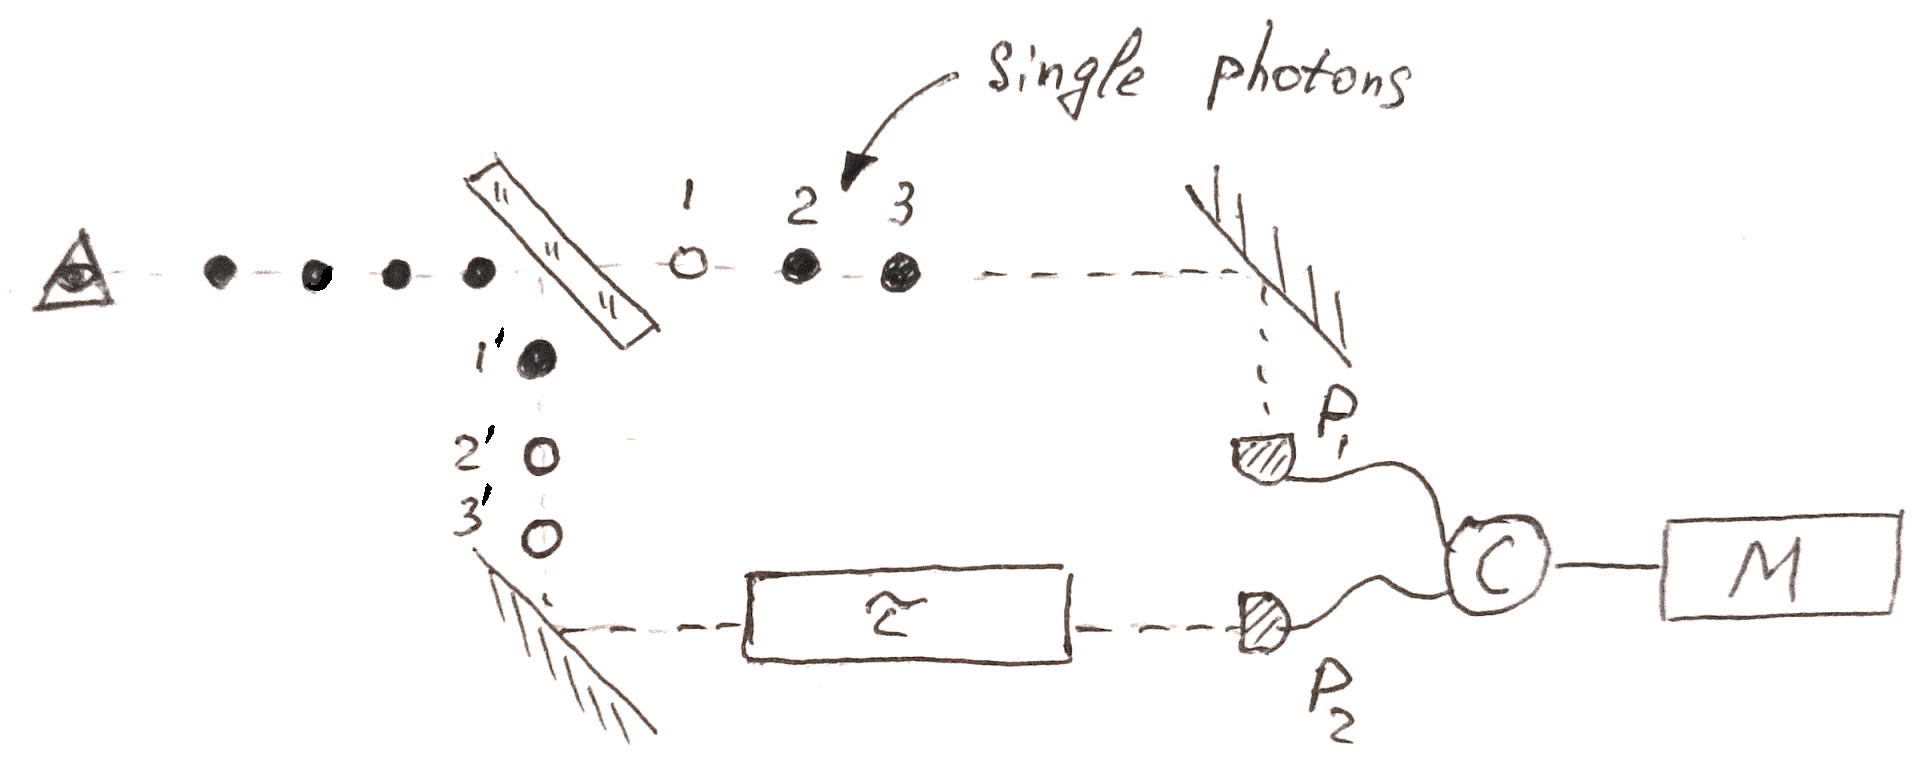 Single photons
1 2 3
1'
2'
3'
P1
τ
C
M
P2